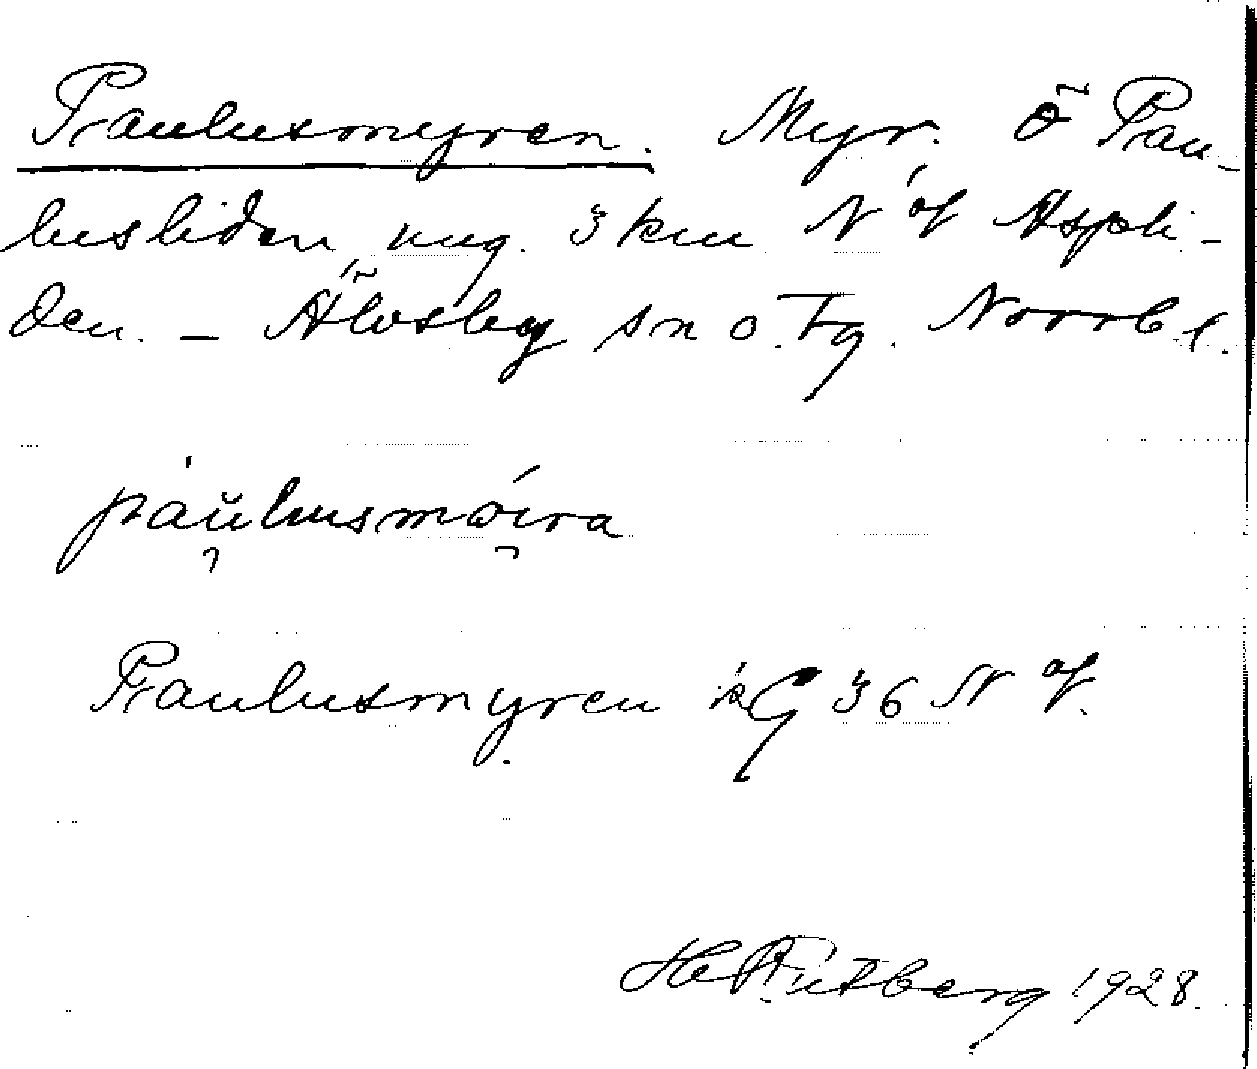 Paulusmyren. Myr. Ö Pau-
lusliden ung. 3 km N of Aspli-
den. – Älvsby sn o. tg. Norrb l.
pau̯lusmöi̯ra
Paulusmyren kG 36 N of.
H Rutberg 1928.